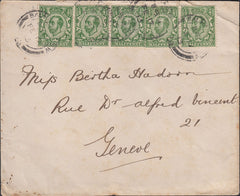 Miss Bertha Hadoon
Rue Dr alfred vincent
21
Geneve